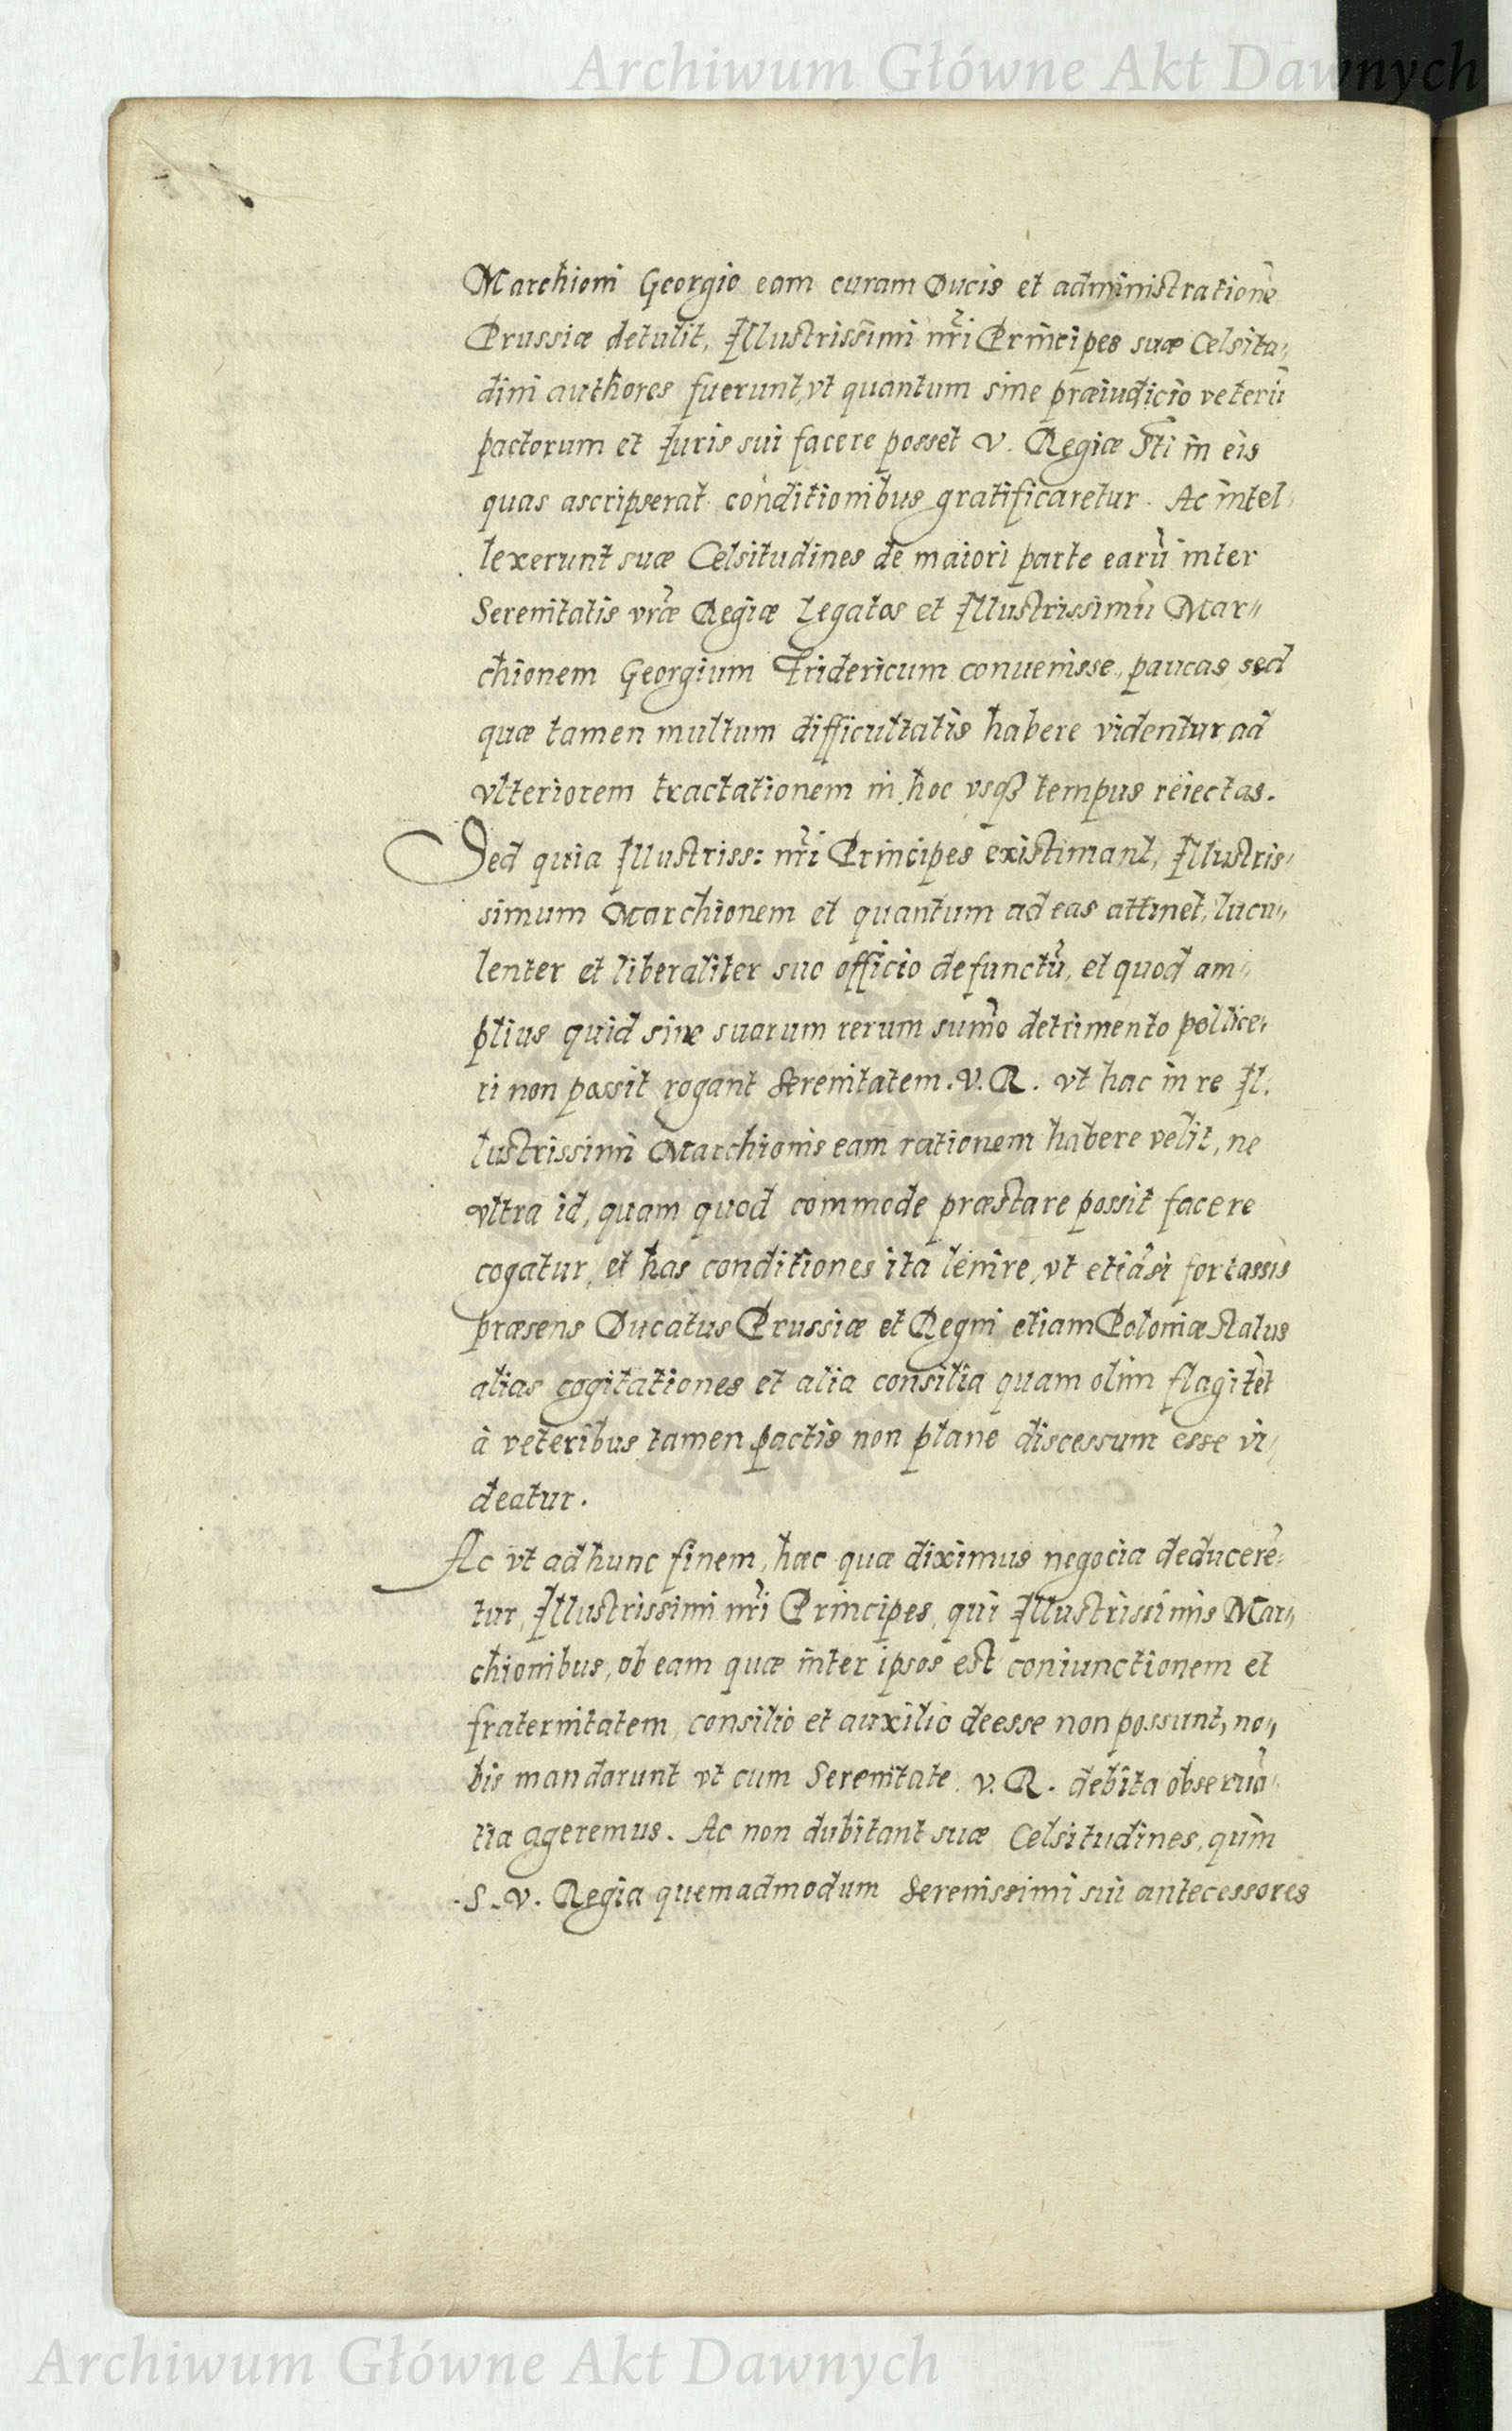 Archiwum Główne Akt Dawnych
Marchioni Georgio eam curam Ducis et administrationē
Prussiæ detulit, Illustrissimi nr̃i Principes suæ Celsitu„
dini authores fuerunt, vt quantum sine præiudicio veterū
pactorum et Iuris sui facere posset V. Regiæ S̃ti in eis
quas ascripserat conditionibus gratificaretur. Ac intel„
lexerunt suæ Celsitudines de maiori parte earū inter
Serenitatis vr̃æ Regiæ Legatos et Illustrissimū Mar„
chionem Georgium Fridericum conuenisse, paucas sed
quæ tamen multum difficultatis habere videntur, ad
vlteriorem tractationem in hoc vsq3 tempus reiectas.
Sed quia Illustriss: nr̃i Principes existimant, Illustris„
simum Marchionem et quantum ad eas attinet, lucu„
lenter et liberaliter suo officio defunctū, et quod am„
plius quid sine suarum rerum sum̃o detrimento pollice„
ri non possit rogant Serenitatem. V. R. vt hac in re Il„
lustrissimi Marchionis eam rationem habere velit, ne
vltra id, quam quod commode præstare possit facere
cogatur, et has conditiones ita lenire, vt etiāsi fortassis
præsens Ducatus Prussiæ et Regni etiam Poloniæ status
alias cogitationes et alia consilia quam olim flagitet
à veteribus tamen pactis non plane discessum esse vi„
deatur.
Ac vt ad hunc finem, hæc quæ diximus negocia deducerē„
tur, Illustrissimi nr̃i Principes, qui Illustrissimis Mar„
chionibus, ob eam quæ inter ipsos est coniunctionem et
fraternitatem, consilio et auxilio deesse non possunt, no„
bis mandarunt vt cum Serenitate V. R. debita obseruā„
tia ageremus. Ac non dubitant suæ Celsitudines, quin
S. V. Regia quemadmodum Serenissimi sui antecessores
Archiwum Główne Akt Dawnych